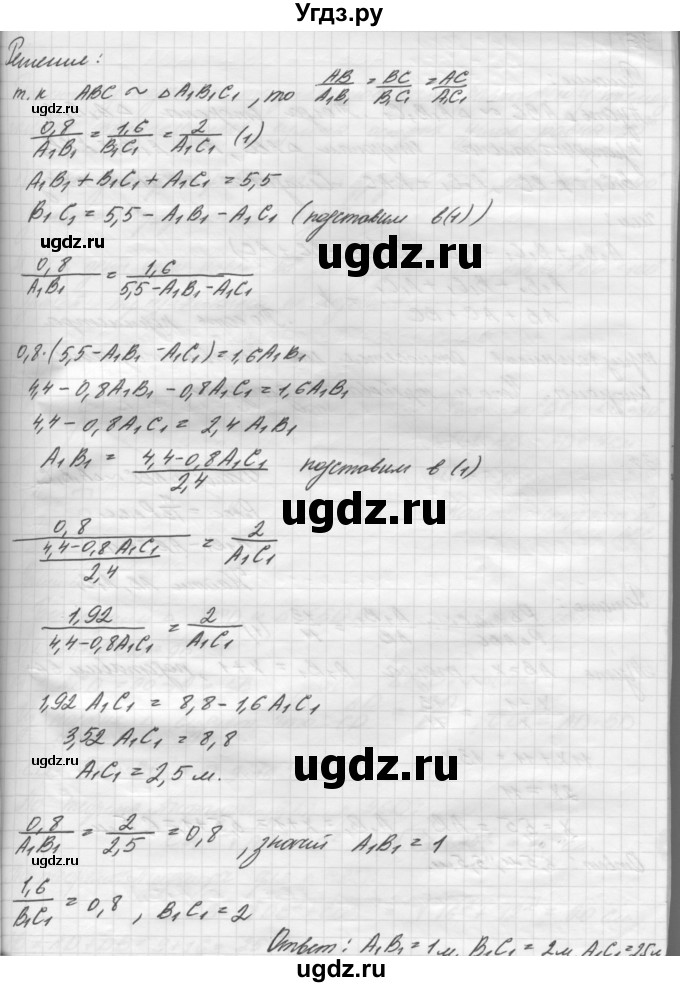 Угдз.ру
Решение:
т.к ABC ~ ΔA₁B₁C₁, то AB/A₁B₁ = BC/B₁C₁ = AC/A₁C₁
ugdz.ru
0,8/A₁B₁ = 1,6/B₁C₁ = 2/A₁C₁ (1)
ugdz.ru
A₁B₁ + B₁C₁ + A₁C₁ = 5,5
B₁C₁ = 5,5 - A₁B₁ - A₁C₁ (подставим в (1))
ugdz.ru
ugdz.ru
0,8/A₁B₁ = 1,6/(5,5 - A₁B₁ - A₁C₁)
0,8·(5,5 - A₁B₁ - A₁C₁) = 1,6A₁B₁
ugdz.ru
4,4 - 0,8A₁B₁ - 0,8A₁C₁ = 1,6A₁B₁
4,4 - 0,8A₁C₁ = 2,4 A₁B₁
A₁B₁ = (4,4 - 0,8A₁C₁)/2,4 подставим в (1)
ugdz.ru
ugdz.ru
0,8/((4,4 - 0,8A₁C₁)/2,4) = 2/A₁C₁
1,92/(4,4 - 0,8A₁C₁) = 2/A₁C₁
ugdz.ru
1,92 A₁C₁ = 8,8 - 1,6A₁C₁
3,52 A₁C₁ = 8,8
ugdz.ru
ugdz.ru
A₁C₁ = 2,5 м.
0,8/A₁B₁ = 2/2,5 = 0,8, значит A₁B₁ = 1
ugdz.ru
1,6/B₁C₁ = 0,8, B₁C₁ = 2
Ответ: A₁B₁ = 1м, B₁C₁ = 2м A₁C₁ = 25м
ugdz.ru